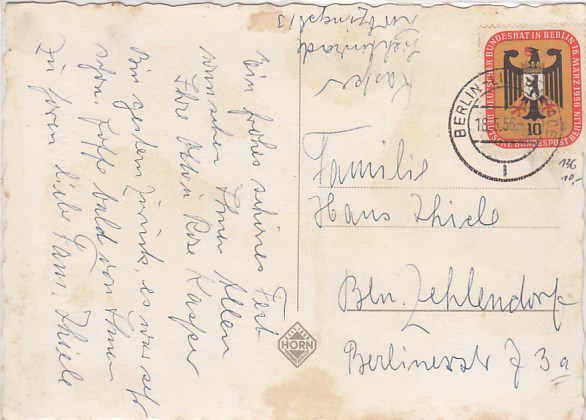 Ein frohes schönes Fest
wünschen Ihnen Allen
Ihre Rose Kasper
Bin gestern zurück, es war sehr
schön. Hoffe bald von Ihnen
zu hören liebe Fam. Thiele
Kasper
Zehlendorf
DEUTSCHER BUNDESRAT IN BERLIN 16. MÄRZ 1956
DEUTSCHE BUNDESPOST BERLIN
10
BERLIN
56
136
10,-
Familie
Hans Thiele
Bln. Zehlendorf
Berlinerstr 3a
HORN